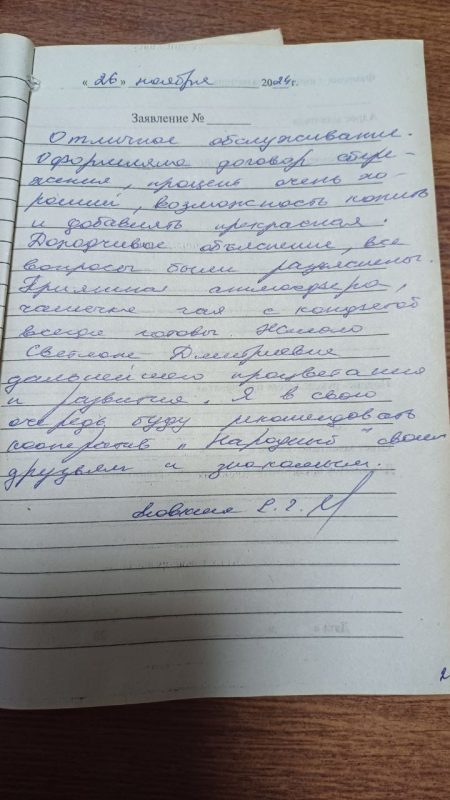 « 26 » ноября 2024 г.
Заявление №
Отличное обслуживание.
Оформляла договор сбере-
жения, процент очень хо-
роший, возможность копить
и добавлять прекрасная.
Доходчивое объяснение, все
вопросы были разъяснены.
Приятная атмосфера,
чашечка чая с конфетой
всегда готовы. Желаю
Светлане Дмитриевне
дальнейшего процветания
и развития. Я в свою
очередь буду рекомендовать
кооператив "Народный" своим
друзьям и знакомым.